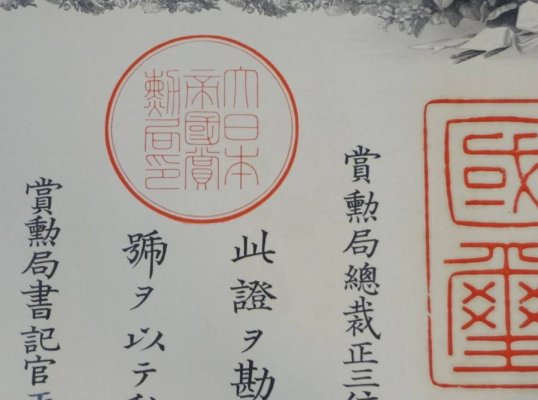 國璽
賞勲局總裁正三位
此證ヲ勘
號ヲ以テ
大日本
帝國賞
勲局印
賞勲局書記官正